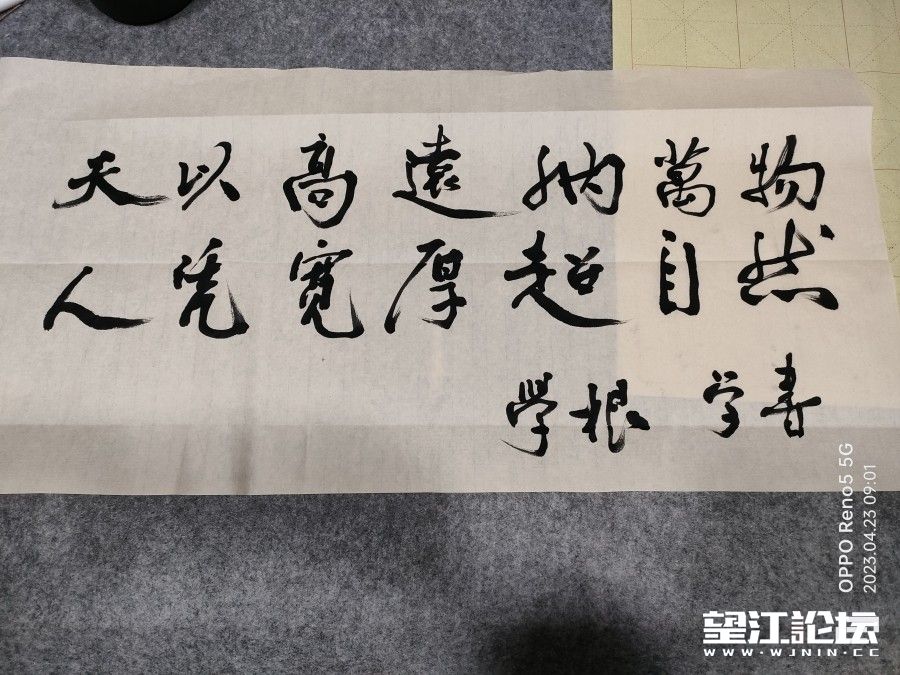 天以高遠納萬物
人凭寬厚超自然
學根 学書
OPPO Reno5 5G
2023.04.23 09:01
望江論坛
WWW.WJNIN.CC